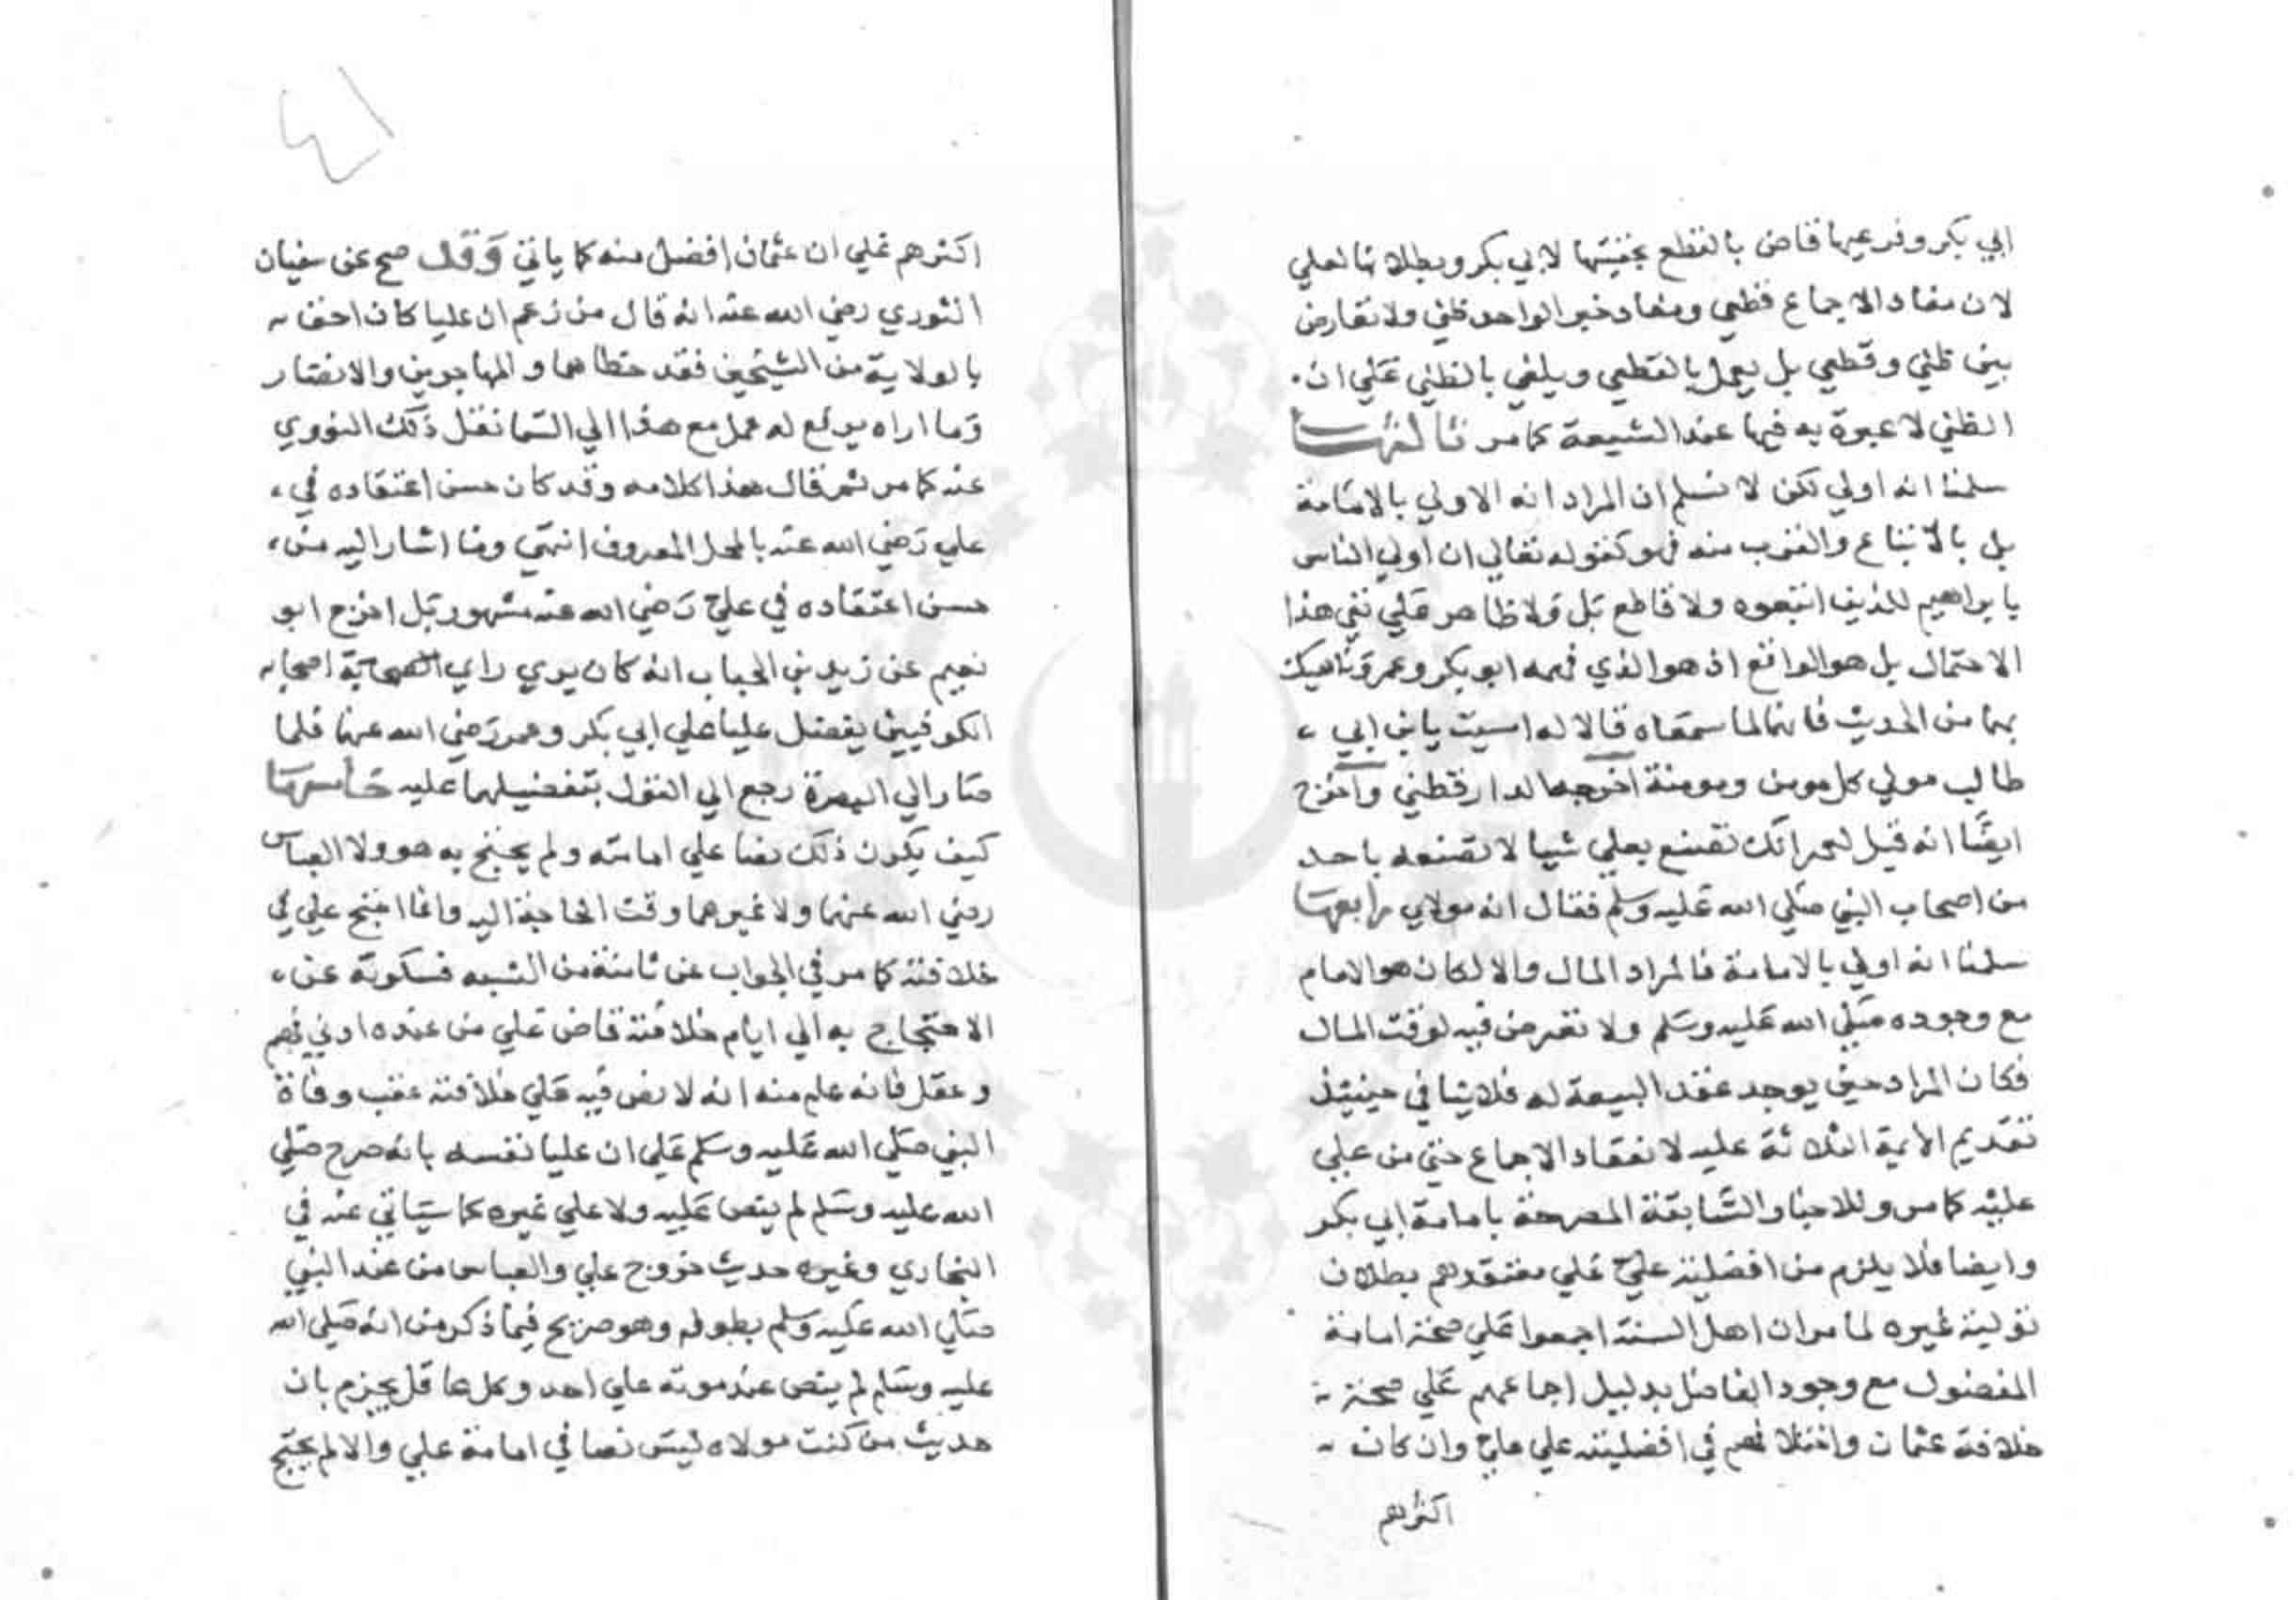 ابي بكر وفرعيها قاض بالقطع بحقيتها لابي بكر وبطلانها لعلي
لان مفاد الاجماع قطعي ومفاد خبر الواحد ظني ولا تعارض
بين ظني وقطعي بل يعمل بالقطعي ويلغي بالظني علي ان
الظني لا عبرة به فيها عند الشيعة كما مر ثالثها
سلمنا انه اولي لكن لا نسلم ان المراد انه الاولي بالامامة
بل بالاتباع والقرب منه فهو كقوله تعالي ان اولي الناس
بابراهيم للذين اتبعوه ولا قاطع بل ولا ظاهر علي نفي هذا
الاحتمال بل هو الواقع اذ هو الذي فهمه ابو بكر وعمر وناهيك
بهما من الحديث فانهما لما سمعاه قالا له امسيت يا بن ابي
طالب مولي كل مومن ومومنة اخرجه الدارقطني واخرج
ايضا انه قيل لعمر انك تصنع بعلي شيا لا تصنعه باحد
من اصحاب النبي صلي الله عليه وسلم فقال انه مولاي رابعها
سلمنا انه اولي بالامامة فالمراد المال والا لكان هو الامام
مع وجوده صلي الله عليه وسلم ولا تعرض فيه لوقت المال
فكان المراد حين يوجد عقد البيعة له فلا ينافي حينيئذ
تقديم الايمة الثلاثة عليه لانعقاد الاجماع حتي من علي
عليه كما مر وللاخبار السابقة المصرحة بامامة ابي بكر
وايضا فلا يلزم من افضلية علي علي معتقدهم بطلان
تولية غيره لما مر ان اهل السنة اجمعوا علي صحة امامة
المفضول مع وجود الفاضل بدليل اجماعهم علي صحة
خلافة عثمان واختلافهم في افضليته علي علي وان كان
اكثرهم
٤١
اكثرهم علي ان عثمان افضل منه كما ياتي وقد صح عن سفيان
الثوري رضي الله عنه انه قال من زعم ان عليا كان احق
بالولاية من الشيخين فقد خطاهما والمهاجرين والانصار
وما اراه يرفع له عمل مع هذا الي السما نقل ذلك النووي
عنه كما مر ثم قال هذا كلامه وقد كان حسن اعتقاده في
علي رضي الله عنه بالمحل المعروف انتهي وما اشار اليه من
حسن اعتقاده في علي رضي الله عنه مشهور بل اخرج ابو
نعيم عن زيد بن الحباب انه كان يري راي الصحابة اصحابه
الكوفيين يفضل عليا علي ابي بكر وعمر رضي الله عنهما فلما
صار الي البصرة رجع الي القول بتفضيلهما عليه خامسها
كيف يكون ذلك نصا علي امامته ولم يحتج به هو ولا العباس
رضي الله عنهما ولا غيرهما وقت الحاجة اليه وانما احتج علي في
خلافته كما مر في الجواب عن ثامنة من الشبه فسكوته عن
الاحتجاج به الي ايام خلافته قاض علي من عنده ادني فهم
وعقل فانه علم منه انه لا نص فيه علي خلافته عقب وفاة
النبي صلي الله عليه وسلم علي ان عليا نفسه بانه صرح صلي
الله عليه وسلم لم ينص عليه ولا علي غيره كما سياتي عنه في
البخاري وغيره حديث خروج علي والعباس من عند النبي
صلي الله عليه وسلم بطوله وهو صريح فيما ذكر من انه صلي الله
عليه وسلم لم ينص عند موته علي احد وكل عاقل يجزم بان
حديث من كنت مولاه ليس نصا في امامة علي والا لم يحتج